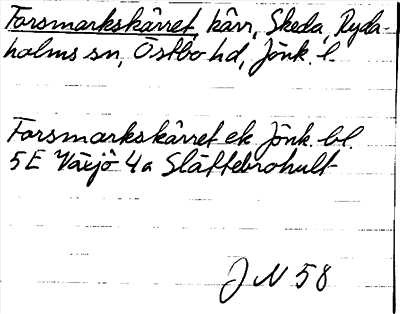 Forsmarkskärret, kärr, Skeda, Ryda-
holms sn, Östbo hd, Jönk. l.
Forsmarkskärret ek Jönk. bl.
5 E Växjö 4a Slättebrohult
J N 58